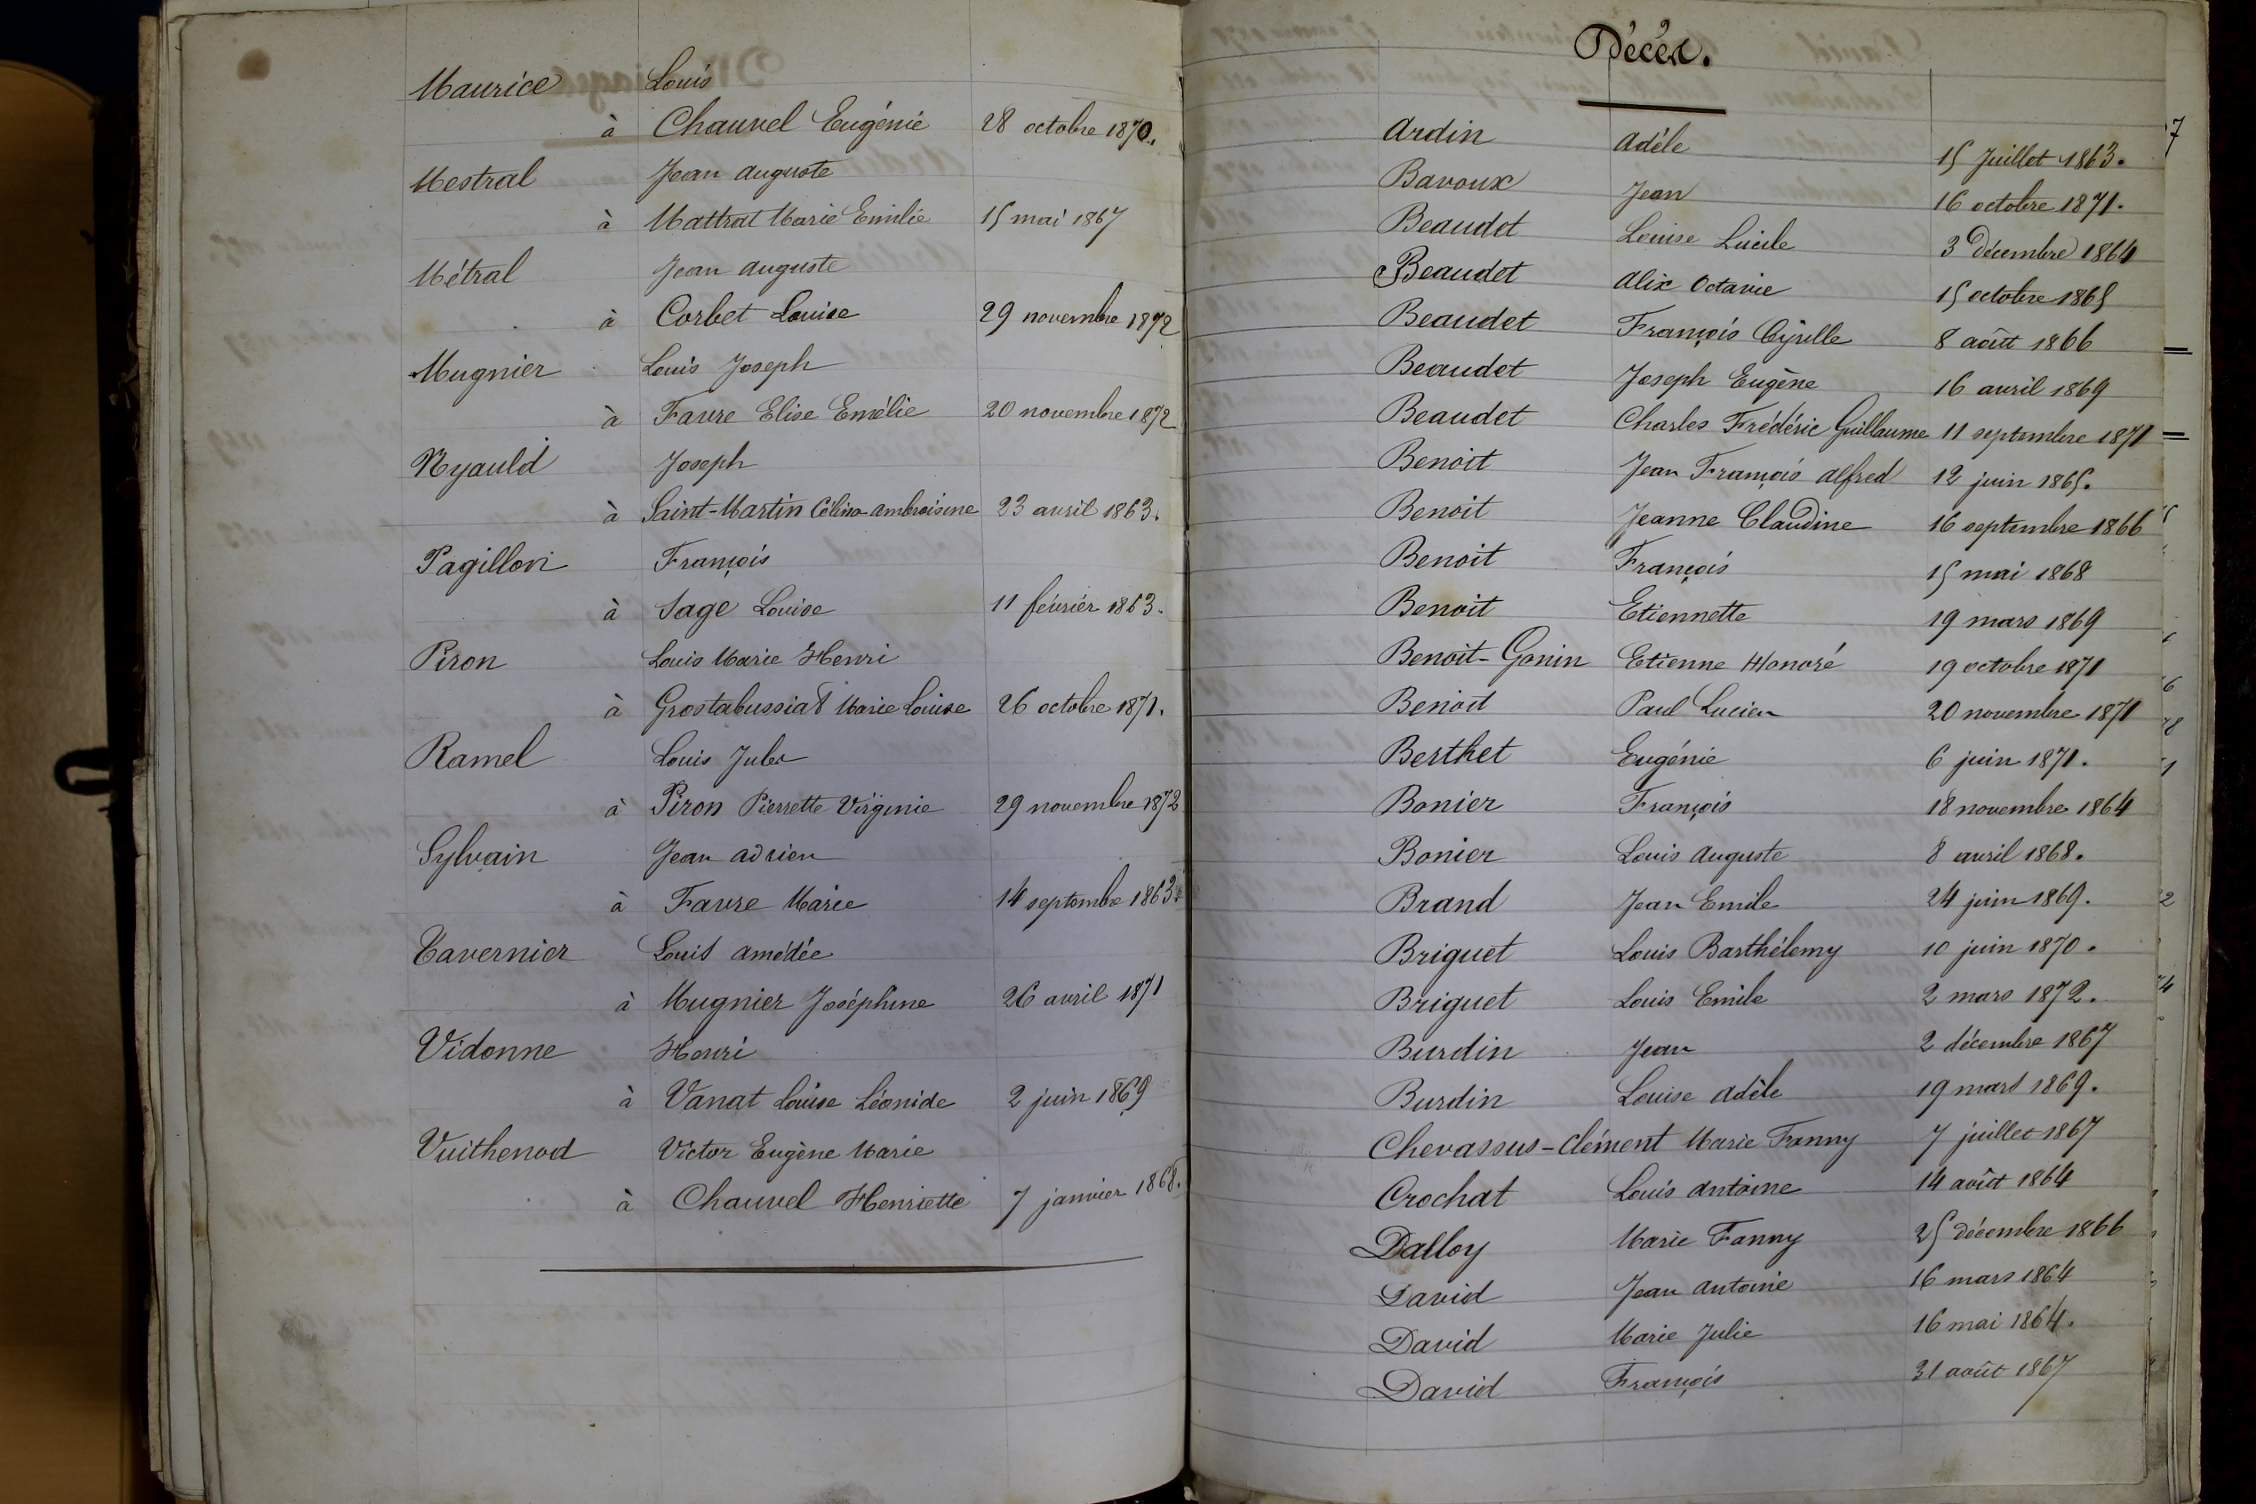 Maurice Louis
à Chauvel Eugénie 28 octobre 1870.
Mestral Jean auguste
à Mattrat Marie Emilie 15 mai 1867
Métral Jean auguste
à Corbet Louise 29 novembre 1872
Mugnier Louis Joseph
à Favre Elise Emélie 20 novembre 1872
Nyauld Joseph
à Saint-Martin Célina ambroisine 23 avril 1863.
Pagillon François
à Sage Louise 11 février 1863.
Piron Louis Marie Henri
à Grostabussiat Marie Louise 26 octobre 1871.
Ramel Louis Jules
à Piron Pierrette Virginie 29 novembre 1872
Sylvain Jean adrien
à Favre Marie 14 septembre 1863.
Tavernier Louis amédée
à Mugnier Joséphine 26 avril 1871
Vidonne Henri
à Vanat Louise Léonide 2 juin 1869
Vuithenod Victor Eugène Marie
à Chauvel Henriette 7 janvier 1868.
Décès.
Ardin Adèle 15 Juillet 1863.
Bavoux Jean 16 octobre 1871.
Beaudet Louise Lucile 3 Décembre 1864
Beaudet Alix Octavie 15 octobre 1865
Beaudet François Cyrille 8 août 1866
Beaudet Joseph Eugène 16 avril 1869
Beaudet Charles Frédéric Guillaume 11 septembre 1871
Benoit Jean François alfred 12 juin 1865.
Benoit Jeanne Claudine 16 septembre 1866
Benoit François 15 mai 1868
Benoit Etiennette 19 mars 1869
Benoit-Gonin Etienne Honoré 19 octobre 1871
Benoit Paul Lucien 20 novembre 1871
Berthet Eugénie 6 juin 1871.
Bonier François 18 novembre 1864
Bonier Louis auguste 8 avril 1868.
Brand Jean Emile 24 juin 1869.
Briguet Louis Barthélemy 10 juin 1870.
Briguet Louis Emile 2 mars 1872.
Burdin Jean 2 décembre 1867
Burdin Louise adèle 19 mars 1869.
Chevassus-Clément Marie Fanny 7 juillet 1867
Crochat Louis antoine 14 août 1864
Dalloy Marie Fanny 25 décembre 1866
David Jean antoine 16 mars 1864
David Marie Julie 16 mai 1864.
David François 31 août 1867